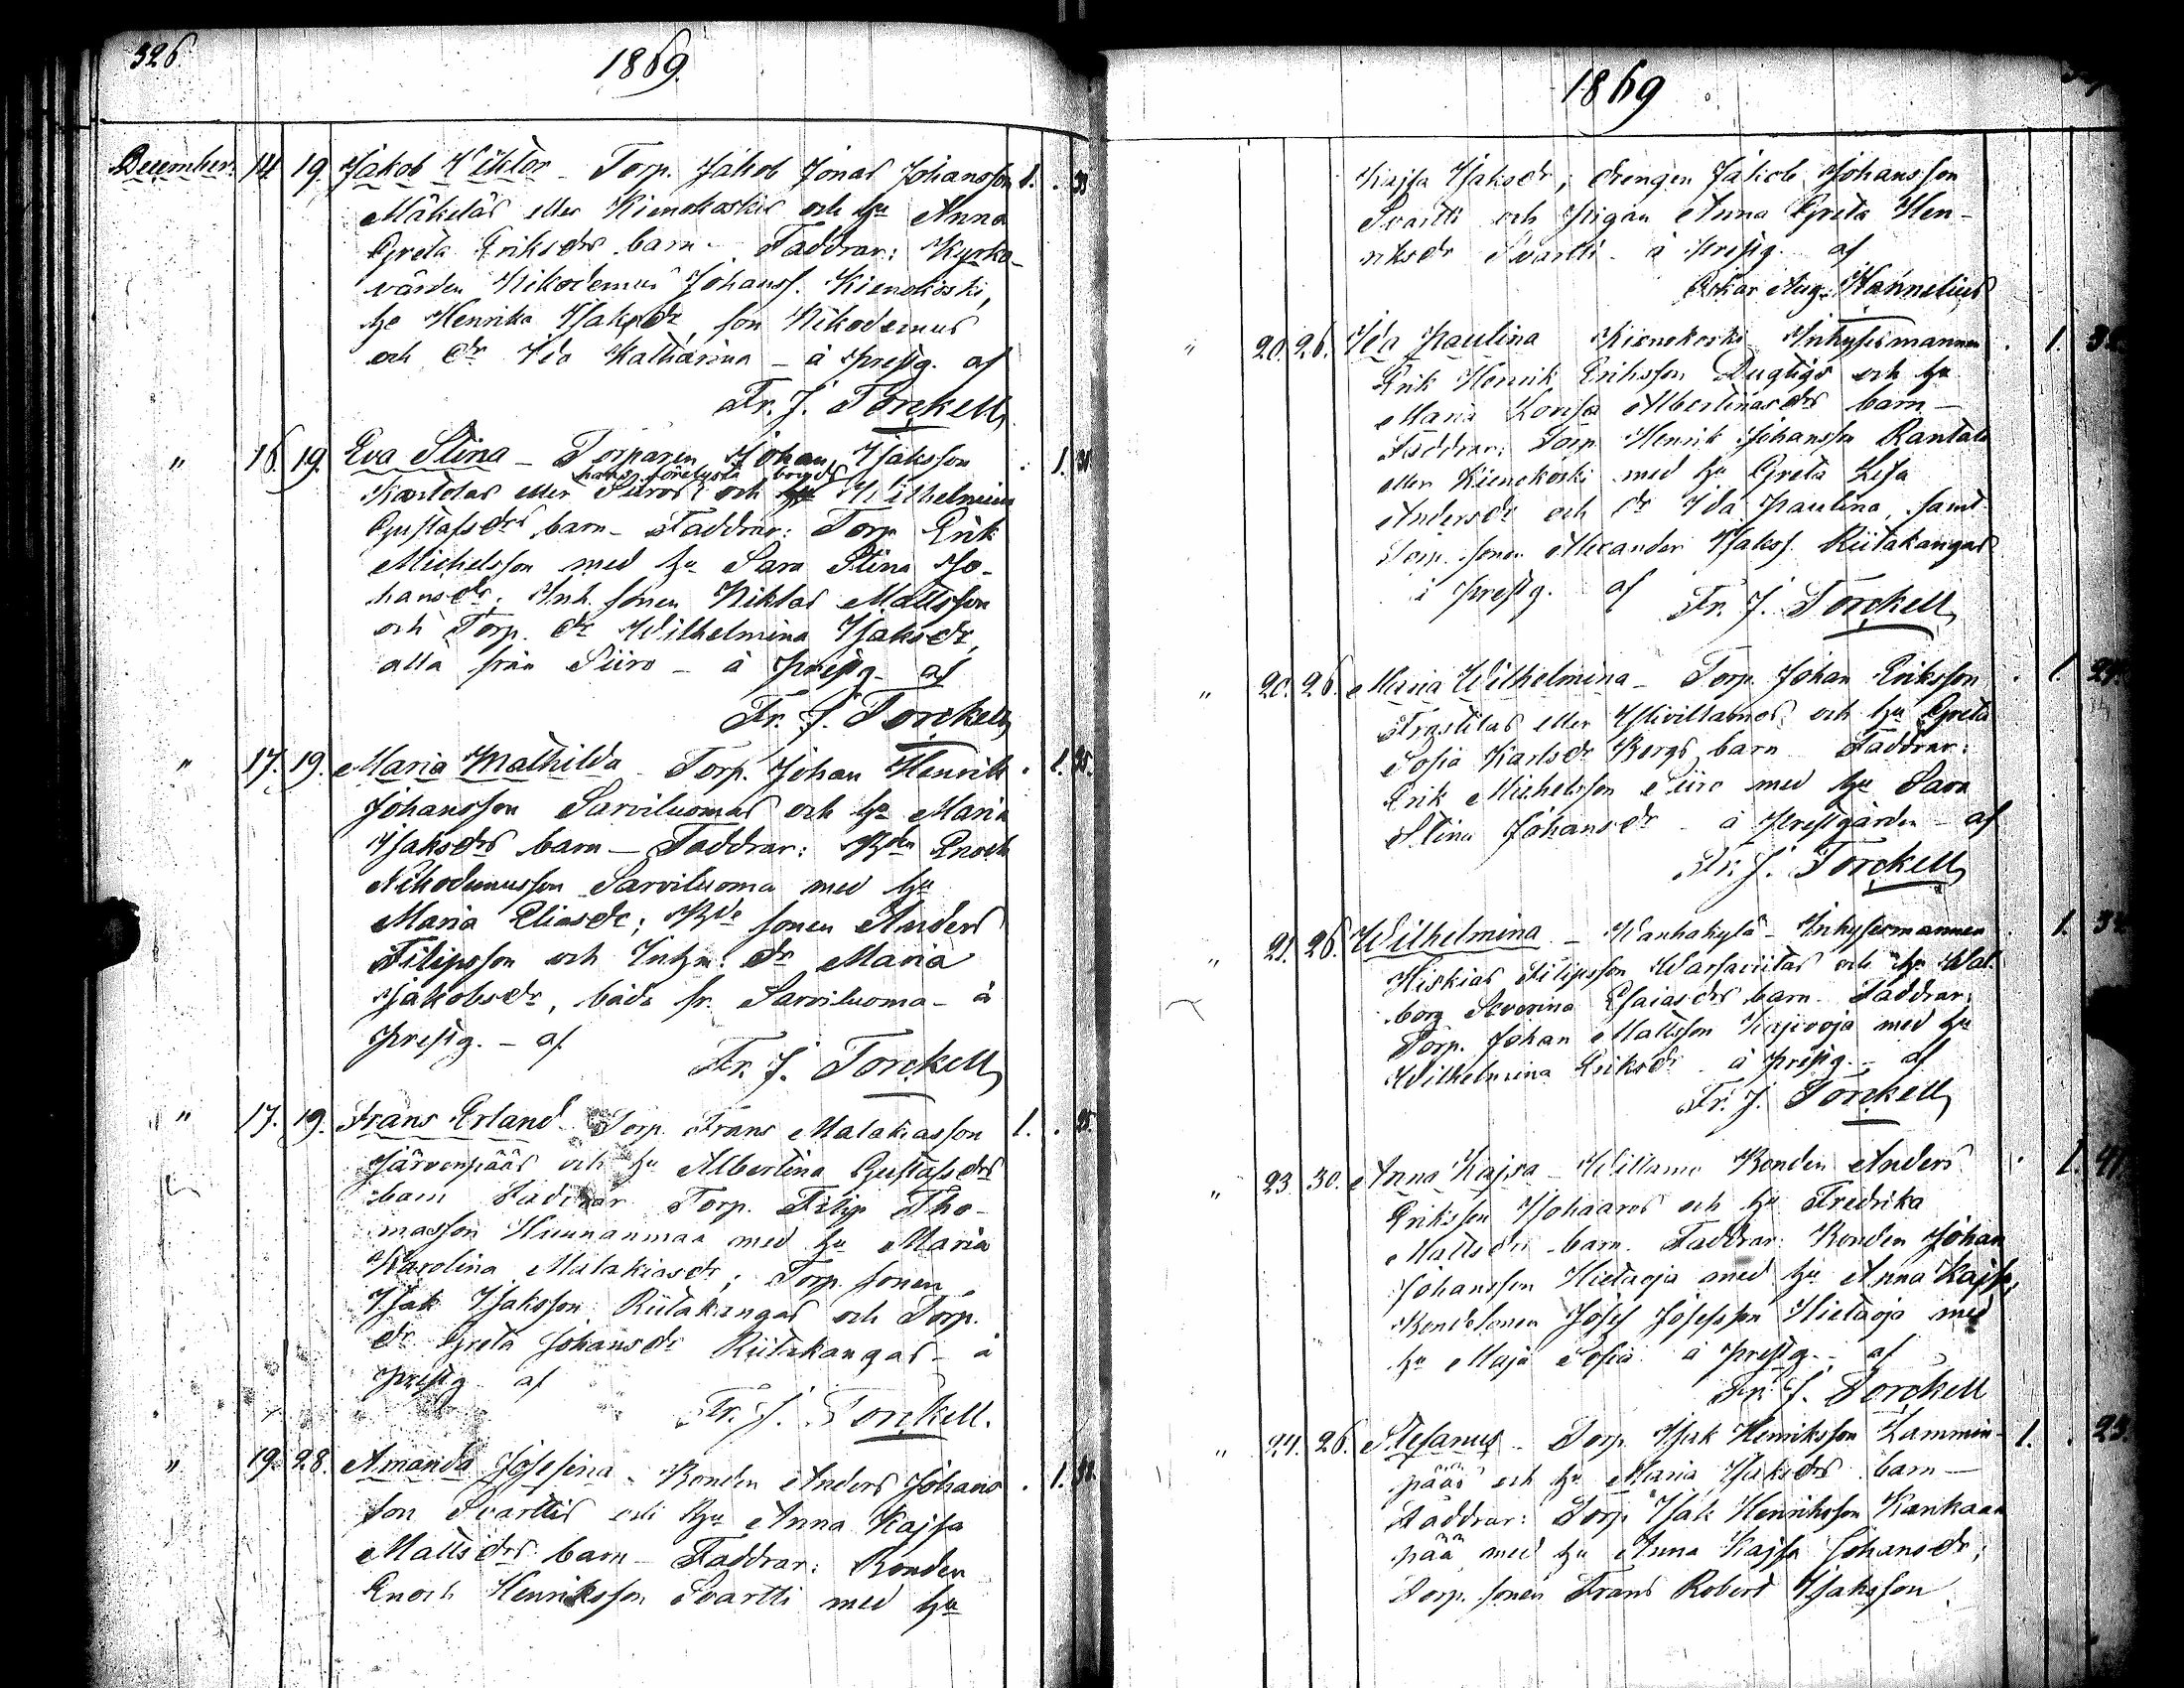 326
1869.
December 14 19. Jakob Viktor - Torp. Jakob Jonas Johansson 1. .
Mäkeläs eller Kienokoskis och hu Anna
Greta Eriksdrs barn - Faddrar: Kyrko-
värden Nikodemus Johanss. Kienokoski,
hu Henrika Isaksdr, son Nikodemus
och dr Ida Katharina - å prestg. af
Fr. J. Torckell
" 16. 19. Eva Stina - Torparen Johan Isaksson . 1.
hans förelofsta brud
eller Siiros och hu Wilhelmina
Gustafsdrs barn - Faddrar: Torp Erik
Michelsson med hu Sara Stina Jo-
hansdr; Inh. sonen Niklas Mattsson
och Torp. dr Wilhelmina Isaksdr,
alla från Siiro - å prestg - af
Fr. J. Torckell
" 17. 19. Maria Mathilda - Torp. Johan Henrik . 1. 25.
Johansson Sarviluomas och hu Maria
Isaksdrs barn - Faddrar: Bdn Enoch
Nikodemusson Sarviluoma med hu
Maria Eliasdr; Bde sonen Anders
Filipsson och Inhm. dr Maria
Jakobsdr, båda fr. Sarviluoma - å
prestg. - af
Fr. J. Torckell
" 17. 19. Frans Erland - Torp. Frans Malakiasson 1. . 25.
Järvenpääs och hu Albertina Gustafsdrs
barn Faddrar Torp. Filip Tho-
masson Huunanmaa med hu Maria
Karolina Malakiasdr; Torp. sonen
Isak Isaksson Riitakangas och Torp.
dr Greta Johansdr Riitakangas - å
prestg - af
Fr. J. Torckell.
" 19. 28. Amanda Josefina - Bonden Anders Johans . 1.
son Svarttis och hu Anna Kajsa
Mattsdrs barn - Faddrar: Bonden
Enoch Henriksson Svartti med hu
1869
Kajsa Isaksdr; drengen Jakob Johansson
Svartti och pigan Anna Greta Hen-
riksdr Svartti - å prestg. af
Oskar Aug. Hannelius
" 20. 26. Ida Paulina Kienokoski Inhysesmannen . 1. 32
Erik Henrik Eriksson Dugtigs och hu
Maria Lovisa Albertinasdrs barn -
Faddrar: Torp Henrik Johansson Rantala
eller Kienokoski med hu Greta Lisa
Andersdr och dr Ida Paulina, samt
Torp. sonen Alexander Isakss. Riitakangas
i prestg. af Fr. J. Torckell
" 20. 26. Maria Wilhelmina - Torp. Johan Eriksson . 1. 27.
eller och hu Greta
Sofia Karlsdr Bergs barn Faddrar:
Erik Michelsson Siiro med hu Sara
Stina Johansdr - å Prestgården - af
Fr. J. Torckell
" 21. 26. Wilhelmina - Wanhakylä - Inhysesmannen . 1.
Hiskias Filipsson och hu Wal-
borg Severina Esaiasdrs barn - Faddrar:
Torp. Johan Mattsson med hu
Wilhelmina Eriksdr - å prestg. - af
Fr. J. Torckell
" 23. 30. Anna Kajsa - Willamo Bonden Anders . 1. 41.
Eriksson och hu Fredrika
Mattsdrs barn. Faddrar: Bonden Johan
Johansson Hietaoja med hu Anna Kajsa;
Bondesonen Josef Josefsson Hietaoja med
hu Maja Sofia å prestg. - af
Fr. J. Torckell
" 24. 26. Stefanus - Torp. Isak Henriksson Lammin- 1. . 23.
pääs och hu Maria Isaksdrs barn -
Faddrar: Torp Isak Henriksson Kankaan
pää med hu Anna Kajsa Johansdr;
Torp. sonen Frans Robert Isaksson